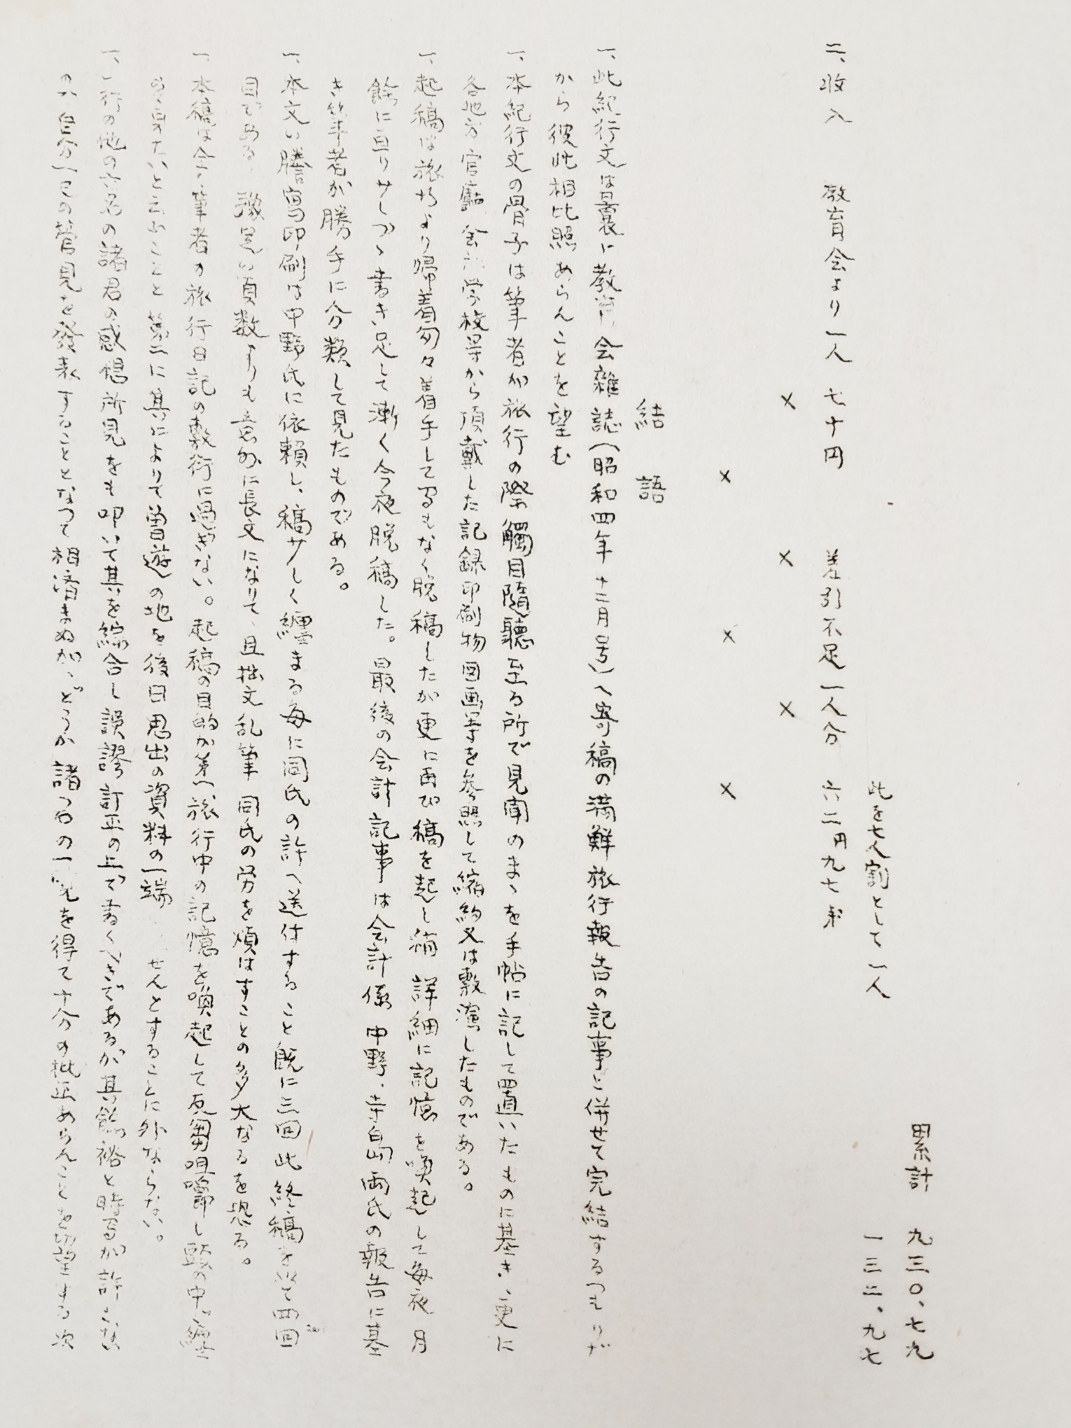 累計　九三〇、七九
此を七人割として一人　一三二、九七
二、收入　教育会より一人　七十円　差引不足一人分　六二円九七銭
×　×　×
×　×　×
結語
一、此紀行文は曩に教育会雑誌（昭和四年十二月号）へ寄稿の満鮮旅行報告の記事と併せて完結するつもりだ
から彼此相比照あらんことを望む
一、本紀行文の骨子は筆者が旅行の際觸目隨聽至る所で見聞のまゝを手帖に記して置いたものに基き、更に
各地方官廳会社学校等から頂戴した記録印刷物図画等を参照して縮約又は敷演したものである。
一、起稿は旅行より帰着匆々着手して間もなく脱稿したが更に再び稿を起し稍詳細に記憶を喚起して毎夜月
餘に亘り少しづゝ書き足して漸く今夜脱稿した。最後の会計記事は会計係中野、寺島両氏の報告に基
き筆者が勝手に分類して見たものである。
一、本文の謄寫印刷は中野氏に依頼し、稿少しく纏まる毎に同氏の許へ送付すること既に三回此終稿を以て四回
目である　豫定の頁数よりも意外に長文になりて、且拙文乱筆同氏の労を煩はすことの多大なるを恐る。
一、本稿は全く筆者の旅行日記の敷衍に過ぎない。起稿の目的が第一旅行中の記憶を喚起して反芻咀嚼し頭の中に纏
めて見たいと云ふことと第二に其によりて曽遊の地を後日思出の資料の一端　せんとすることに外ならない。
一、一行の他の六名の諸君の感想所見をも叩いて其を綜合し誤謬訂正の上で書くべきであるが其餘裕と時間が許さない
の　自分一己の管見を發表することとなつて相済まぬが、どうか諸　の一　を得て十分の批正あらんことを切望する次